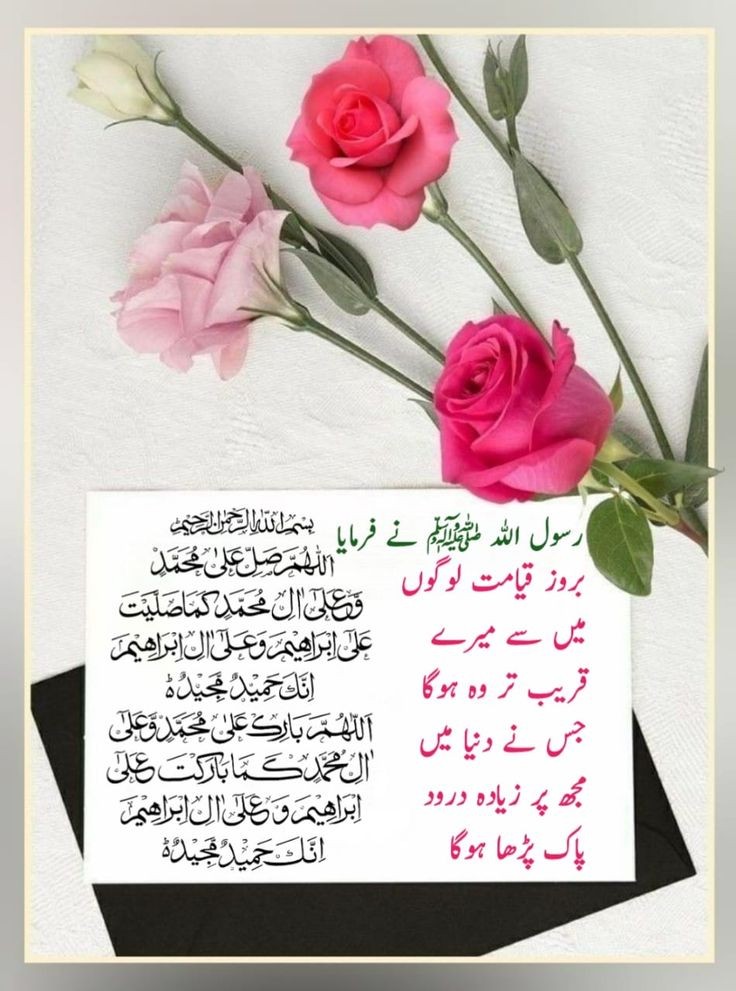 رسول اللہ ﷺ نے فرمایا
بروز قیامت لوگوں
میں سے میرے
قریب تر وہ ہوگا
جس نے دنیا میں
مجھ پر زیادہ درود
پاک پڑھا ہوگا
بسم الله الرحمن الرحيم
اَللّٰهُمَّ صَلِّ عَلٰى مُحَمَّدٍ
وَّعَلٰٓى اٰلِ مُحَمَّدٍ كَمَا صَلَّيْتَ
عَلٰٓى اِبْرَاهِيْمَ وَعَلٰٓى اٰلِ اِبْرَاهِيْمَ
اِنَّكَ حَمِيْدٌ مَّجِيْدٌ ؕ
اَللّٰهُمَّ بَارِكْ عَلٰى مُحَمَّدٍ وَّعَلٰٓى
اٰلِ مُحَمَّدٍ كَمَا بَارَكْتَ عَلٰٓى
اِبْرَاهِيْمَ وَعَلٰٓى اٰلِ اِبْرَاهِيْمَ
اِنَّكَ حَمِيْدٌ مَّجِيْدٌ ؕ